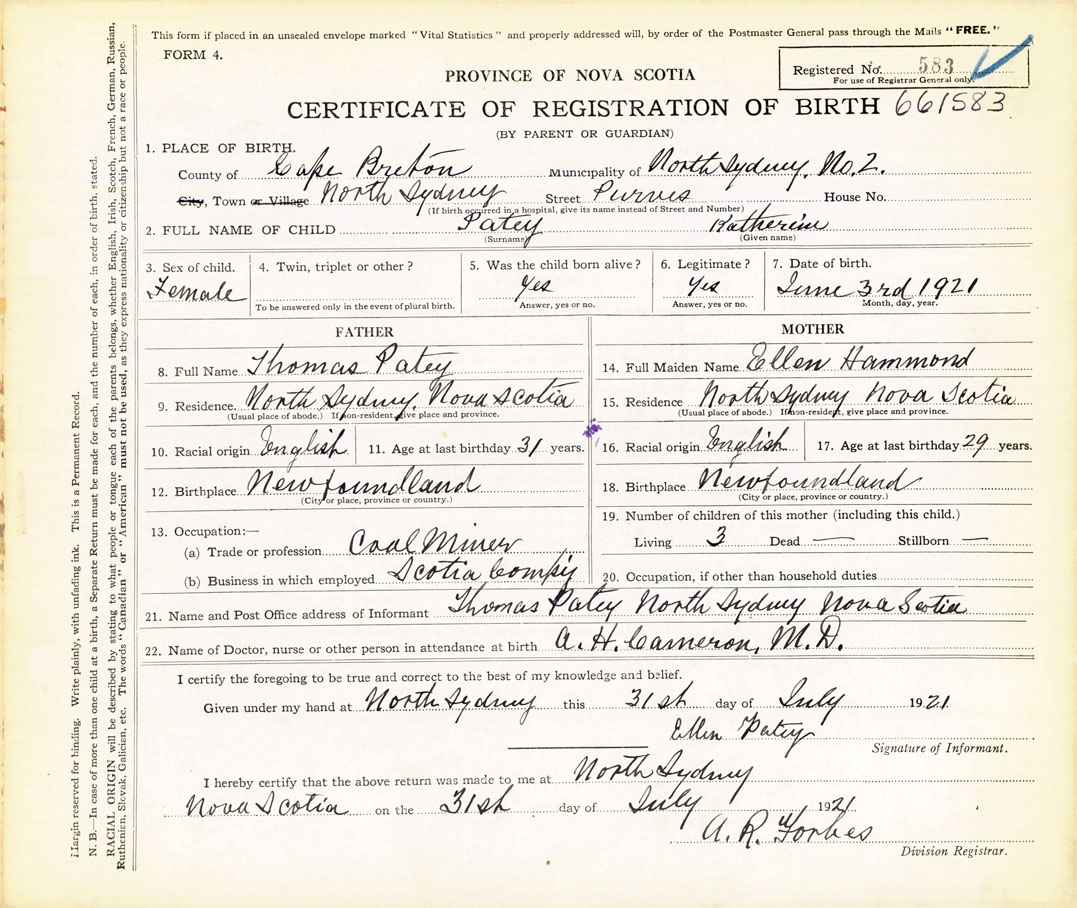 This form if placed in an unsealed envelope marked "Vital Statistics" and properly addressed will, by order of the Postmaster General pass through the Mails "FREE."
FORM 4.
Registered No. 583
For use of Registrar General only.
PROVINCE OF NOVA SCOTIA
CERTIFICATE OF REGISTRATION OF BIRTH 661583
(BY PARENT OR GUARDIAN)
1. PLACE OF BIRTH.
County of Cape Breton Municipality of North Sydney, No. 2.
City, Town or Village North Sydney Street Purves House No.
(If birth occurred in a hospital, give its name instead of Street and Number)
2. FULL NAME OF CHILD Patey Katherine
(Surname) (Given name)
3. Sex of child. 4. Twin, triplet or other? 5. Was the child born alive? 6. Legitimate? 7. Date of birth.
Female Yes Yes June 3rd 1921
To be answered only in the event of plural birth. Answer, yes or no. Answer, yes or no. Month, day, year.
FATHER
8. Full Name Thomas Patey
9. Residence. North Sydney, Nova Scotia
(Usual place of abode.) If non-resident, give place and province.
10. Racial origin English 11. Age at last birthday 31 years.
12. Birthplace Newfoundland
(City or place, province or country.)
13. Occupation:—
(a) Trade or profession Coal Miner
(b) Business in which employed Scotia Compy
MOTHER
14. Full Maiden Name Ellen Hammond
15. Residence North Sydney Nova Scotia
(Usual place of abode.) If non-resident, give place and province.
16. Racial origin English 17. Age at last birthday 29 years.
18. Birthplace Newfoundland
(City or place, province or country.)
19. Number of children of this mother (including this child.)
Living 3 Dead — Stillborn —
20. Occupation, if other than household duties
21. Name and Post Office address of Informant Thomas Patey North Sydney Nova Scotia
22. Name of Doctor, nurse or other person in attendance at birth A. H. Cameron, M. D.
I certify the foregoing to be true and correct to the best of my knowledge and belief.
Given under my hand at North Sydney this 31st day of July 1921
Ellen Patey
Signature of Informant.
I hereby certify that the above return was made to me at North Sydney
Nova Scotia on the 31st day of July 1921
A. R. Forbes
Division Registrar.
Margin reserved for binding. Write plainly, with unfading ink. This is a Permanent Record.
N. B.—In case of more than one child at a birth, a Separate Return must be made for each, and the number of each, in order of birth, stated.
RACIAL ORIGIN will be described by stating to what people or tongue each of the parents belongs, whether English, Irish, Scotch, French, German, Russian,
Ruthenian, Slovak, Galician, etc. The words "Canadian" or "American" must not be used, as they express nationality or citizenship but not a race or people.